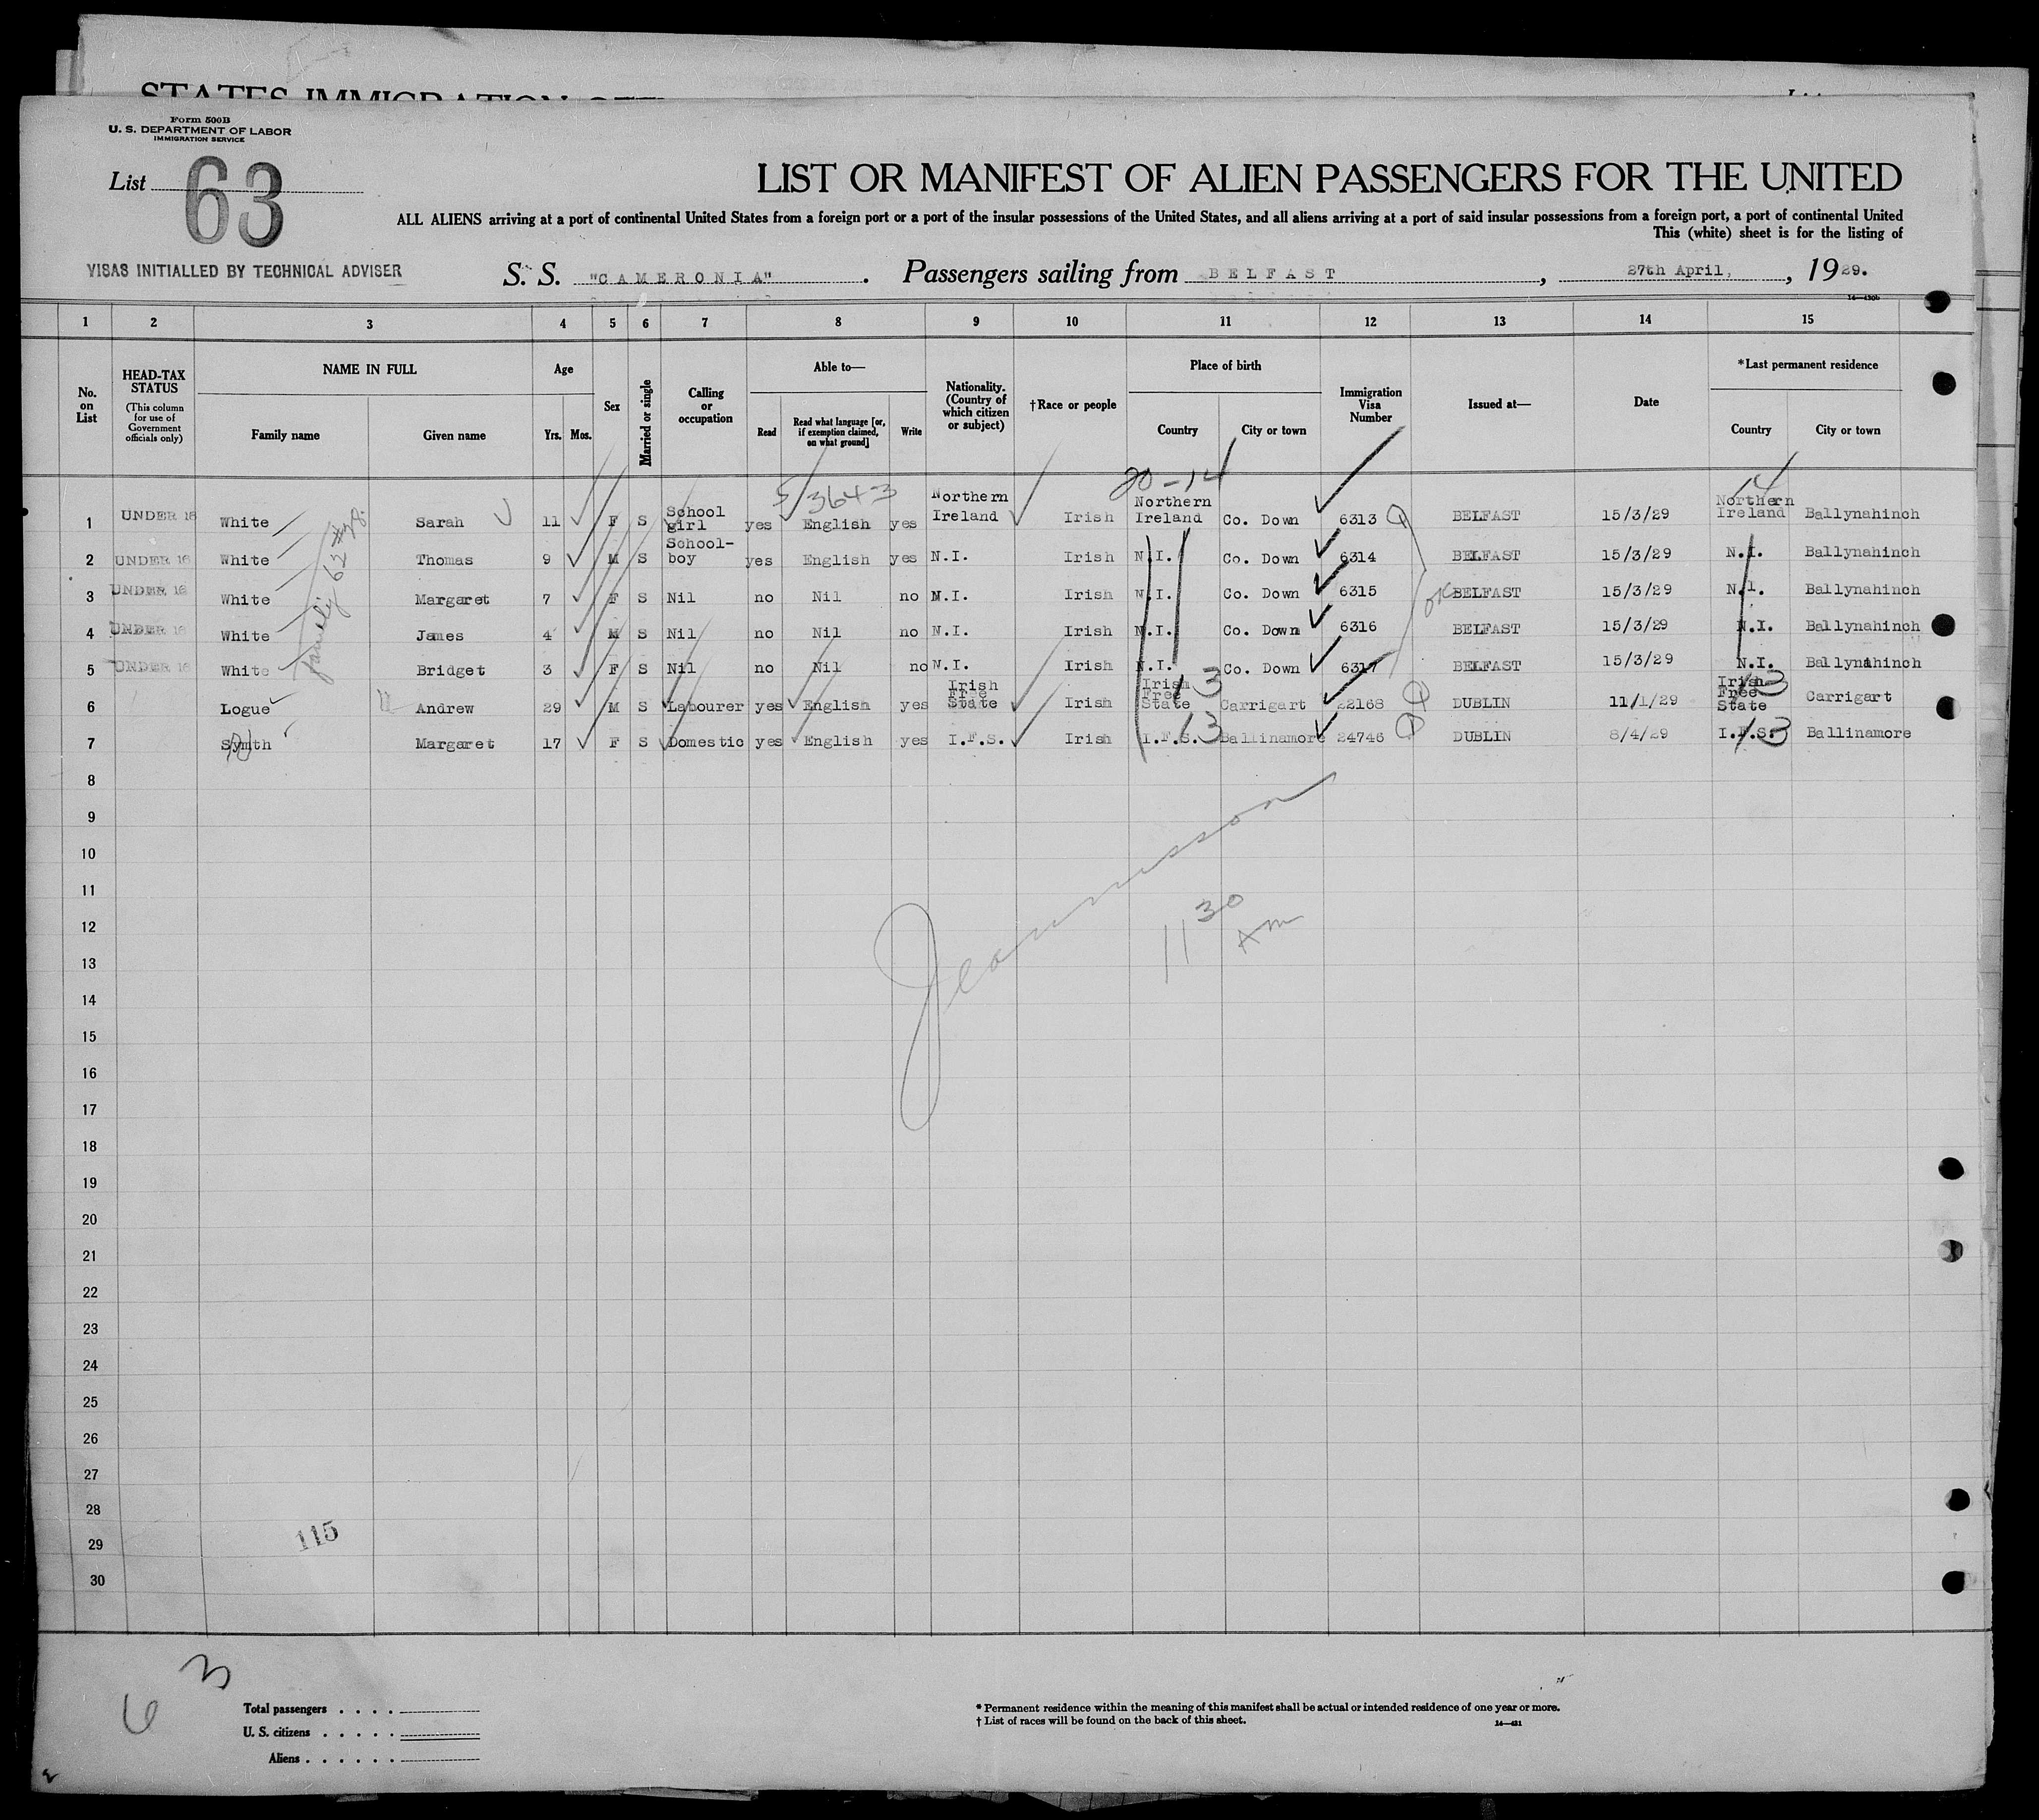 STATES IMMIGRATION
Form 500B
U. S. DEPARTMENT OF LABOR
IMMIGRATION SERVICE
List 63
LIST OR MANIFEST OF ALIEN PASSENGERS FOR THE UNITED
ALL ALIENS arriving at a port of continental United States from a foreign port or a port of the insular possessions of the United States, and all aliens arriving at a port of said insular possessions from a foreign port, a port of continental United
This (white) sheet is for the listing of
VISAS INITIALLED BY TECHNICAL ADVISER
S. S. "CAMERONIA". Passengers sailing from BELFAST, 27th April, 1929.
14—430b
1 2 3 4 5 6 7 8 9 10 11 12 13 14 15
No. on List
HEAD-TAX STATUS (This column for use of Government officials only)
NAME IN FULL
Family name Given name
Age
Yrs. Mos.
Sex
Married or single
Calling or occupation
Able to—
Read Read what language [or, if exemption claimed, on what ground] Write
Nationality. (Country of which citizen or subject)
†Race or people
Place of birth
Country City or town
Immigration Visa Number
Issued at—
Date
*Last permanent residence
Country City or town
5/3643 20-14 14
1 UNDER 16 White Sarah 11 F S School girl yes English yes Northern Ireland Irish Northern Ireland Co. Down 6313 BELFAST 15/3/29 Northern Ireland Ballynahinch
2 UNDER 16 White Thomas 9 M S School-boy yes English yes N.I. Irish N.I. Co. Down 6314 BELFAST 15/3/29 N.I. Ballynahinch
3 UNDER 16 White Margaret 7 F S Nil no Nil no N.I. Irish N.I. Co. Down 6315 OK BELFAST 15/3/29 N.I. Ballynahinch
4 UNDER 16 White James 4 M S Nil no Nil no N.I. Irish N.I. Co. Down 6316 BELFAST 15/3/29 N.I. Ballynahinch
5 UNDER 16 White Bridget 3 F S Nil no Nil no N.I. Irish N.I. Co. Down 6317 BELFAST 15/3/29 N.I. Ballynahinch
family 62
6 Logue Andrew 29 M S Labourer yes English yes Irish Free State Irish Irish Free State 13 Carrigart 22168 DUBLIN 11/1/29 Irish Free State 13 Carrigart
7 Symth Margaret 17 F S Domestic yes English yes I.F.S. Irish I.F.S. 13 Ballinamore 24746 DUBLIN 8/4/29 I.F.S. 13 Ballinamore
8
9
10
11
12
13
14
15
16
17
18
19
20
21
22
23
24
25
26
27
28
29
30
11 30 AM
115
3
6
Total passengers
U. S. citizens
Aliens
* Permanent residence within the meaning of this manifest shall be actual or intended residence of one year or more.
† List of races will be found on the back of this sheet.
14—431